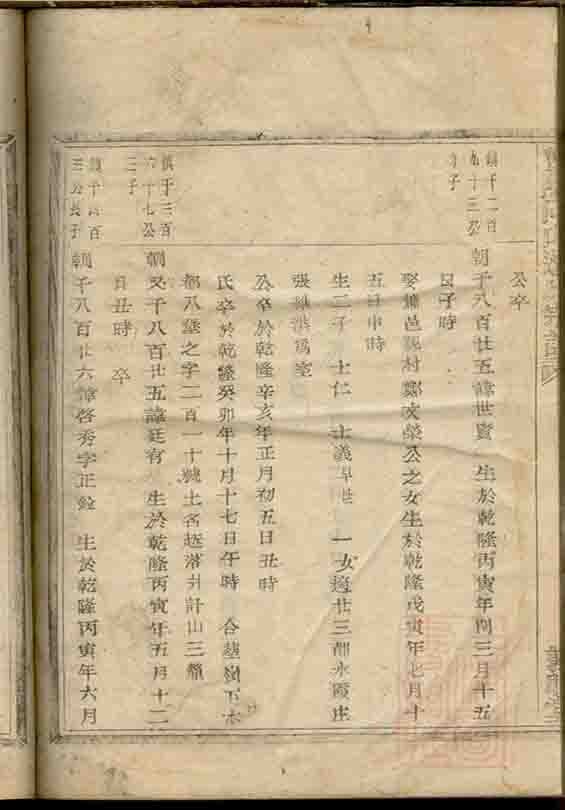 公卒
鎮千二百
十三公
子
朝千八百廿五諱世賢 生於乾隆丙寅年閏三月十五
日子時
娶 邑 村鄭文榮公之女生於乾隆戊寅年七月十
五日申時
生二子 士仁 士義早世 一女適廿三都永陵庄
張 洪爲室
公卒於乾隆辛亥年正月初五日丑時
氏卒於乾隆癸卯年十月十七日午時 合墓嶺下本
都八墓之字二百一十號土名 落 計山三釐
鎮千三百
六十七公
三子
朝又千八百廿五諱廷有 生於乾隆丙寅年五月十二
日丑時 卒
鎮千 百
三公長子
朝千八百廿六諱啓秀字正銓 生於乾隆丙寅年六月